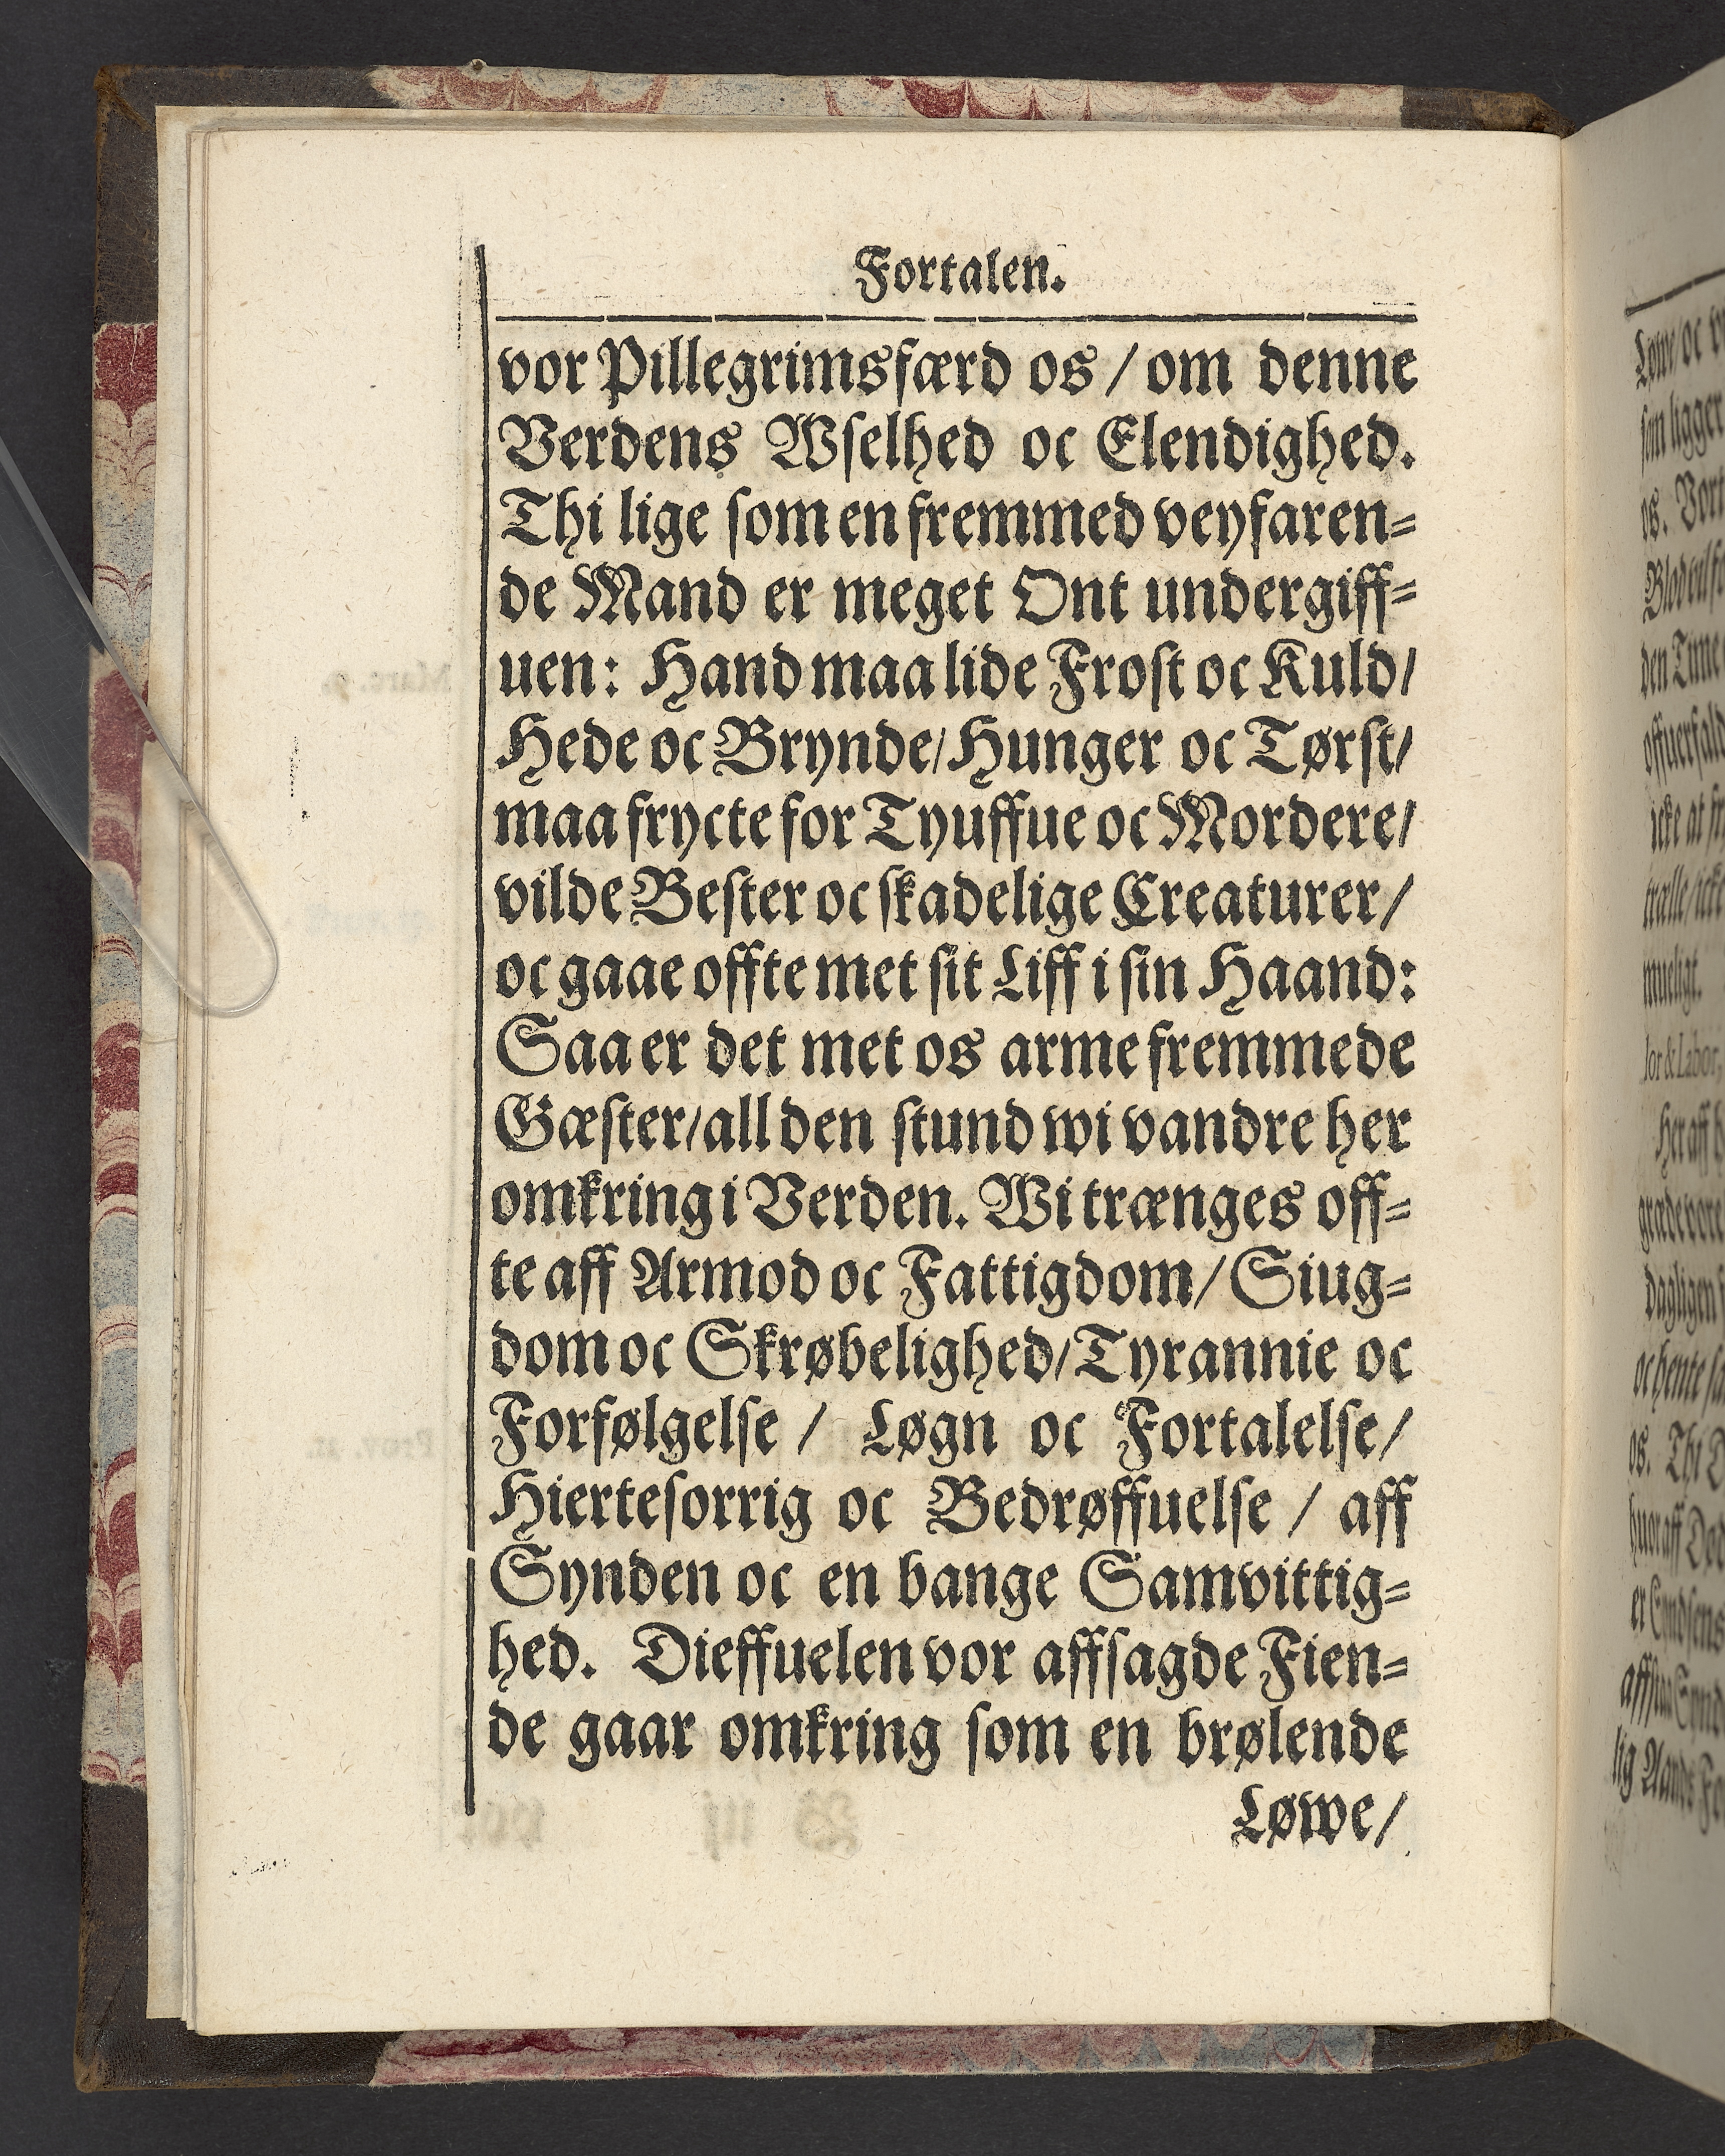 Fortalen.
vor Pillegrimsfærd os / om denne
Verdens Wselhed oc Elendighed.
Thi lige som en fremmed veyfaren=
de Mand er meget Ont undergiff=
uen: Hand maa lide Frost oc Kuld/
Hede oc Brynde/ Hunger oc Tørst/
maa frycte for Tyuffue oc Mordere/
vilde Bester oc skadelige Creaturer/
oc gaae offte met sit Liff i sin Haand:
Saa er det met os arme fremmede
Gæster/ all den stund wi vandre her
omkring i Verden. Wi trænges off=
te aff Armod oc Fattigdom/ Siug=
dom oc Skrøbelighed/ Tyrannie oc
Forfølgelse / Løgn oc Fortalelse/
Hiertesorrig oc Bedrøffuelse / aff
Synden oc en bange Samvittig=
hed. Dieffuelen vor affsagde Fien=
de gaar omkring som en brølende
Løwe/